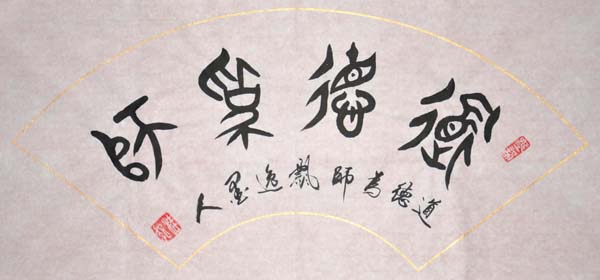 道德為師
道德為師飄逸墨人